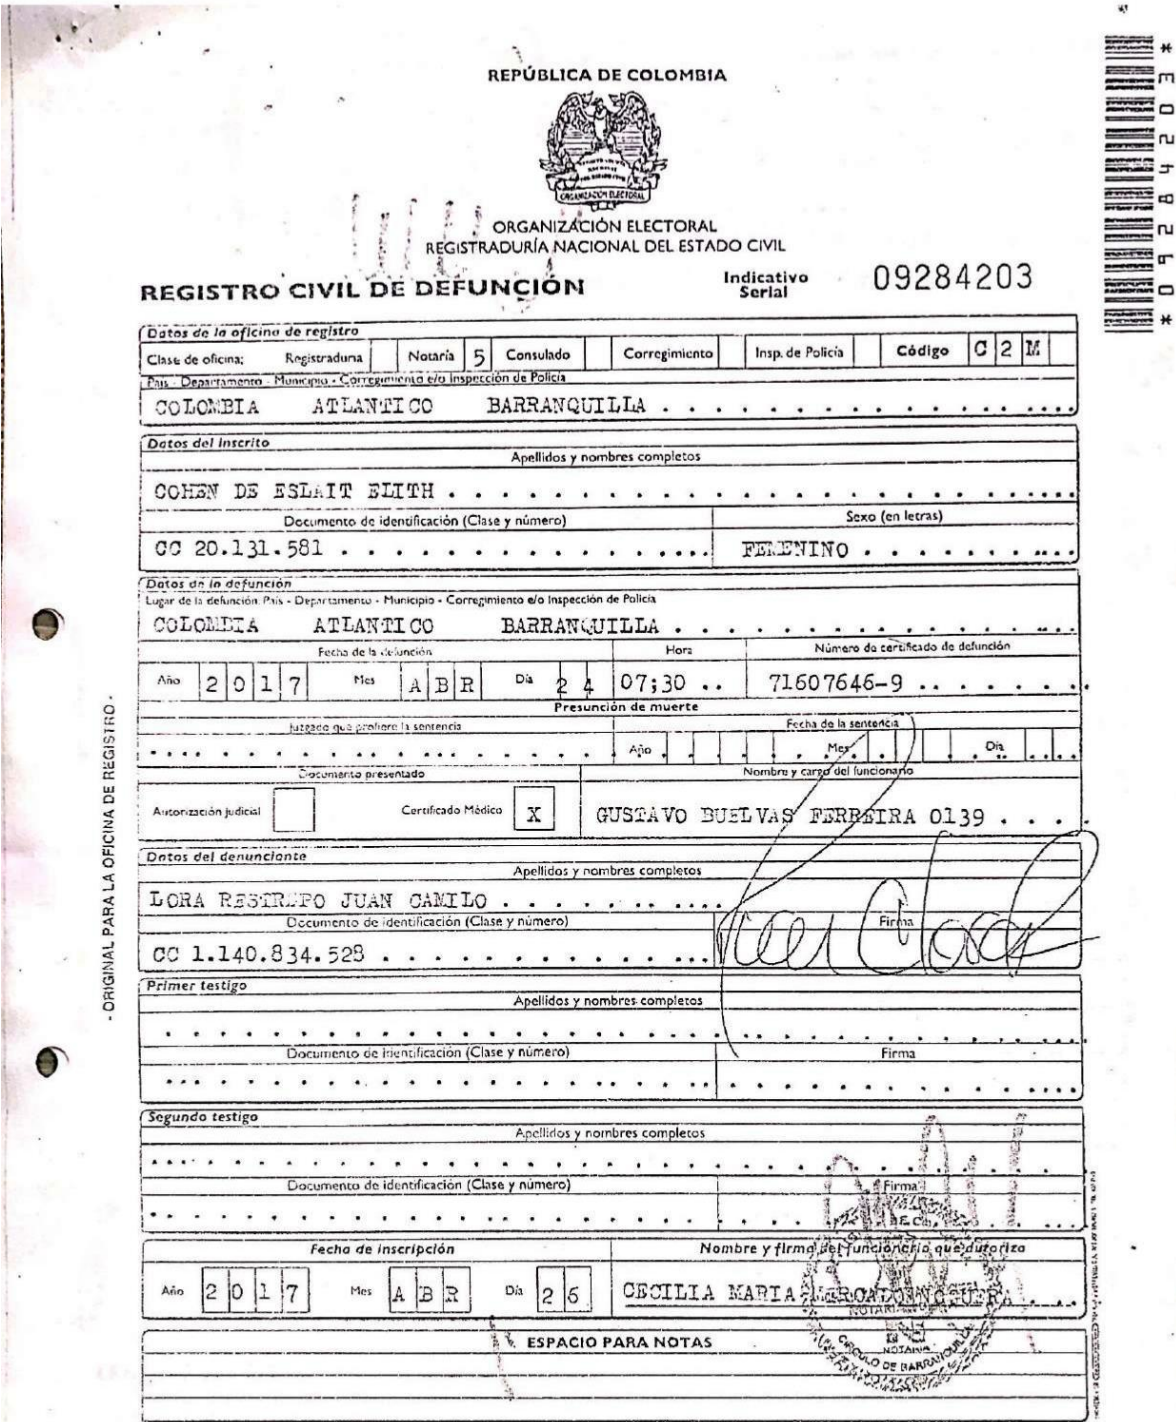 REPÚBLICA DE COLOMBIA
ORGANIZACIÓN ELECTORAL
ORGANIZACIÓN ELECTORAL
REGISTRADURÍA NACIONAL DEL ESTADO CIVIL
REGISTRO CIVIL DE DEFUNCIÓN
Indicativo Serial 09284203
Datos de la oficina de registro
Clase de oficina: Registraduría Notaría 5 Consulado Corregimiento Insp. de Policía Código C 2 M
País - Departamento - Municipio - Corregimiento e/o Inspección de Policía
COLOMBIA ATLANTICO BARRANQUILLA
Datos del inscrito
Apellidos y nombres completos
COHEN DE ESLAIT ELITH
Documento de identificación (Clase y número) Sexo (en letras)
CC 20.131.581 FEMENINO
Datos de la defunción
Lugar de la defunción: País - Departamento - Municipio - Corregimiento e/o Inspección de Policía
COLOMBIA ATLANTICO BARRANQUILLA
Fecha de la defunción Hora Número de certificado de defunción
Año 2 0 1 7 Mes A B R Día 2 4 07;30 .. 71607646-9
Presunción de muerte
Juzgado que profiere la sentencia Fecha de la sentencia
Año Mes Día
Documento presentado Nombre y cargo del funcionario
Autorización judicial Certificado Médico X GUSTAVO BUELVAS FERREIRA 0139
Datos del denunciante
Apellidos y nombres completos
LORA RESTREPO JUAN CAMILO
Documento de identificación (Clase y número) Firma
CC 1.140.834.528
Primer testigo
Apellidos y nombres completos
Documento de identificación (Clase y número) Firma
Segundo testigo
Apellidos y nombres completos
Documento de identificación (Clase y número) Firma
Fecha de inscripción Nombre y firma del funcionario que autoriza
Año 2 0 1 7 Mes A B R Día 2 6 CECILIA MARIA
NOTARIA
CIRCULO DE BARRANQUILLA
ESPACIO PARA NOTAS
- ORIGINAL PARA LA OFICINA DE REGISTRO -